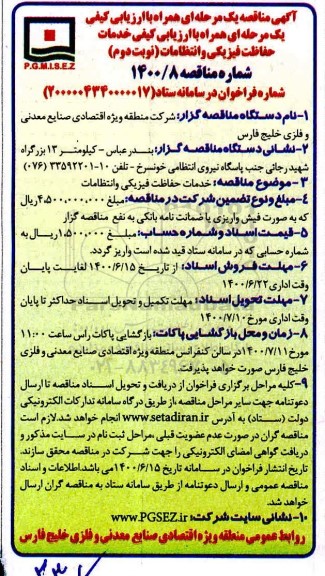 آگهی مناقصه یک مرحله ای همراه با ارزیابی کیفی
یک مرحله ای همراه با ارزیابی کیفی خدمات
حفاظت فیزیکی و انتظامات (نوبت دوم)
P.G.M.I.S.E.Z
شماره مناقصه ۱۴۰۰/۸
شماره فراخوان در سامانه ستاد (۲۰۰۰۰۰۴۳۴۰۰۰۰۰۱۷)
۱-نام دستگاه مناقصه گزار: شرکت منطقه ویژه اقتصادی صنایع معدنی
و فلزی خلیج فارس
۲-نشانی دستگاه مناقصه گزار: بندر عباس - کیلومتر ۱۳ بزرگراه
شهید رجائی جنب پاسگاه نیروی انتظامی خونسرخ - تلفن ۱۰-۳۳۵۹۲۲۰۱ (۰۷۶)
۳-موضوع مناقصه: خدمات حفاظت فیزیکی وانتظامات
۴-مبلغ و نوع تضمین شرکت در مناقصه: مبلغ ۴,۵۰۰,۰۰۰,۰۰۰ ریال
که به صورت فیش واریزی یا ضمانت نامه بانکی به نفع مناقصه گزار
۵-قیمت اسناد و شماره حساب: مبلغ ۱,۵۰۰,۰۰۰ ریال به
شماره حسابی که در سامانه ستاد قید شده است واریز گردد.
۶-مهلت فروش اسناد: از تاریخ ۱۴۰۰/۶/۱۵ لغایت پایان
وقت اداری ۱۴۰۰/۶/۲۲
۷-مهلت تحویل اسناد: مهلت تکمیل و تحویل اسناد حداکثر تا پایان
وقت اداری مورخ ۱۴۰۰/۷/۱۰
۸-زمان و محل بازگشایی پاکات: بازگشایی پاکات راس ساعت ۱۱:۰۰
مورخ ۱۴۰۰/۷/۱۱ در سالن کنفرانس منطقه ویژه اقتصادی صنایع معدنی و فلزی
خلیج فارس صورت خواهد پذیرفت.
۹-کلیه مراحل برگزاری فراخوان از دریافت و تحویل اسناد مناقصه تا ارسال
دعوتنامه جهت سایر مراحل مناقصه ،از طریق درگاه سامانه تدارکات الکترونیکی
دولت (ستاد) به آدرس www.setadiran.ir انجام خواهد شد.لازم است
مناقصه گران در صورت عدم عضویت قبلی ،مراحل ثبت نام در سایت مذکور و
دریافت گواهی امضای الکترونیکی را جهت شرکت در مناقصه محقق سازند.
تاریخ انتشار فراخوان در سامانه تاریخ ۱۴۰۰/۶/۱۵ می باشد.اطلاعات و اسناد
مناقصه عمومی و ارسال دعوتنامه از طریق سامانه ستاد به مناقصه گران ارسال
خواهد شد.
۱۰-نشانی سایت شرکت: www.PGSEZ.ir
روابط عمومی منطقه ویژه اقتصادی صنایع معدنی و فلزی خلیج فارس